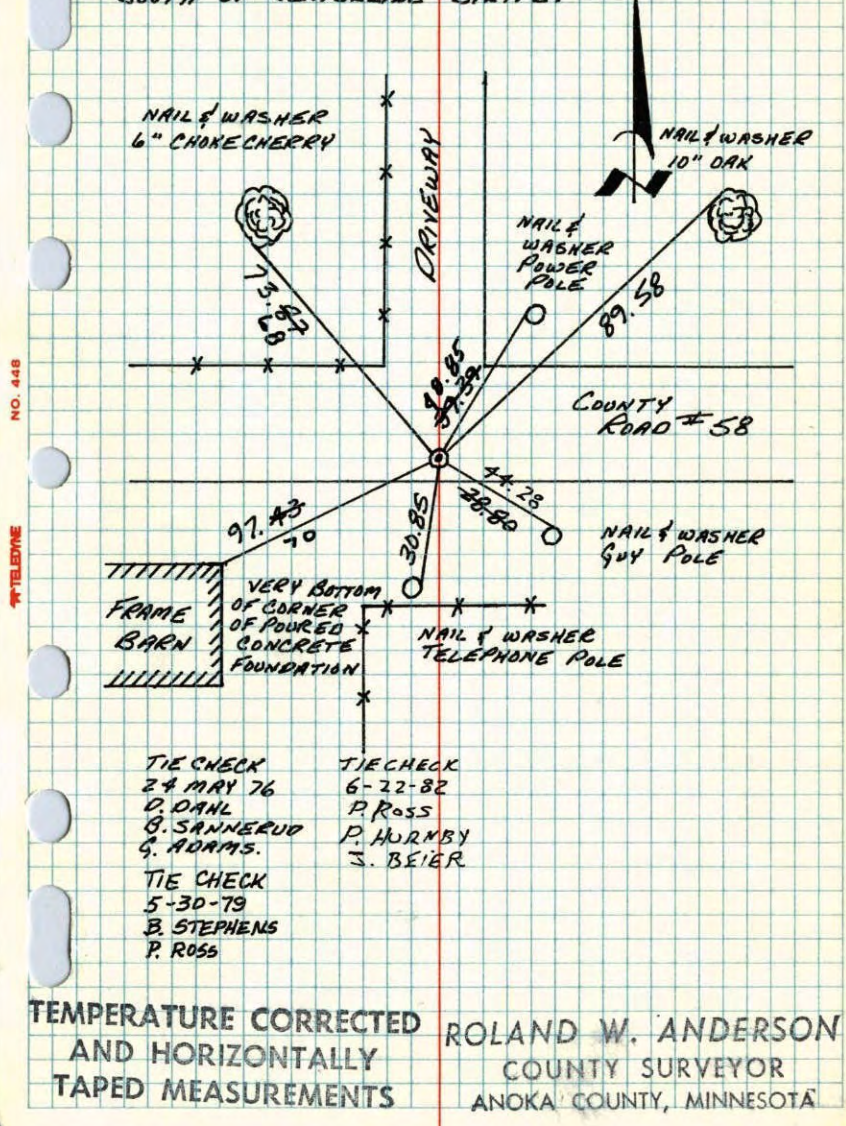 SOUTH OF
NAIL & WASHER
6" CHOKECHERRY
DRIVEWAY
NAIL & WASHER
10" OAK
NAIL &
WASHER
POWER
POLE
73.87
68
89.58
48.85
39.39
COUNTY
ROAD # 58
44.28
38.80
97.43
70
30.85
NAIL & WASHER
GUY POLE
FRAME
BARN
VERY BOTTOM
OF CORNER
OF POURED
CONCRETE
FOUNDATION
NAIL & WASHER
TELEPHONE POLE
NO. 448
TELEDYNE
TIE CHECK
24 MAY 76
D. DAHL
B. SANNERUD
G. ADAMS.
TIE CHECK
5-30-79
B. STEPHENS
P. ROSS
TIE CHECK
6-22-82
P. ROSS
P. HURNBY
J. BEIER
TEMPERATURE CORRECTED
AND HORIZONTALLY
TAPED MEASUREMENTS
ROLAND W. ANDERSON
COUNTY SURVEYOR
ANOKA COUNTY, MINNESOTA